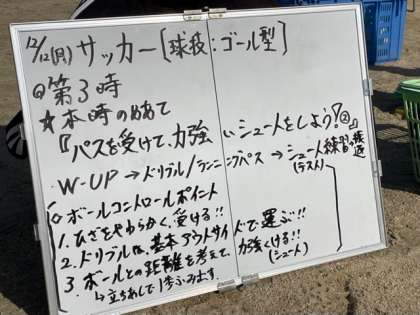 12/12(月) サッカー〔球技:ゴール型〕
◎第3時
☆本時のめあて
『パスを受けて、力強いシュートをしよう!②』
W-UP→ドリブル/ランニングパス→シュート練習&
(ラスト)
◇ボールコントロールポイント
1. ひざをやわらかく、受ける!!
2. ドリブルは、基本アウトサイドで運ぶ!!
3. ボールとの距離を考えて、力強くける!!
(シュート)
↳立ちあしで1歩ふみます。